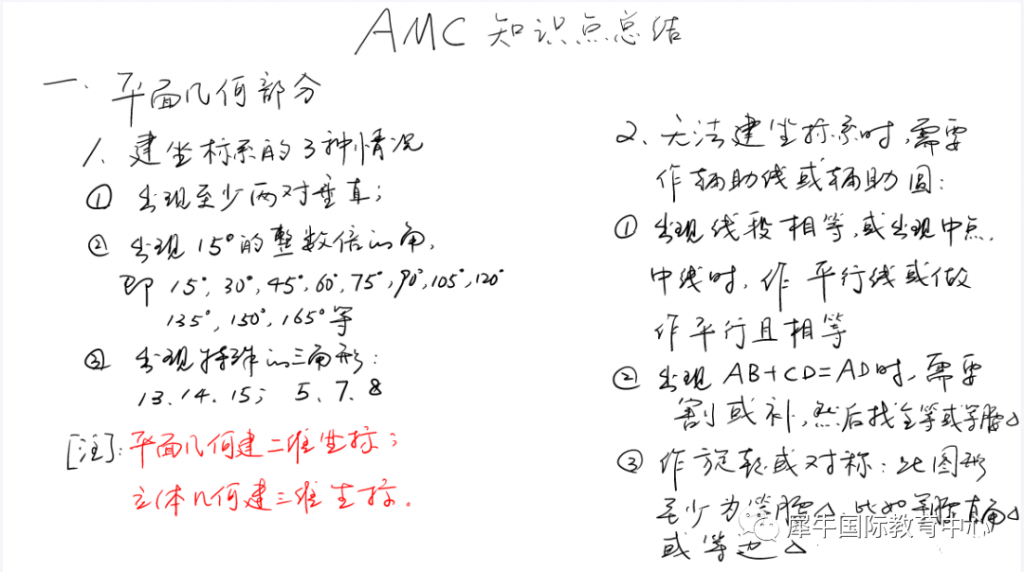 AMC 知识点总结
一. 平面几何部分
1. 建坐标系的3种情况
① 出现至少两对垂直;
② 出现15°的整数倍的角,
即 15°, 30°, 45°, 60°, 75°, 90°, 105°, 120°
135°, 150°, 165° 等
③ 出现特殊的三角形:
13. 14. 15; 5. 7. 8
[注]: 平面几何建二维坐标;
立体几何建三维坐标.
2、无法建坐标系时,需要
作辅助线或辅助圆:
① 出现线段相等,或出现中点.
中线时,作平行线或做
作平行且相等
② 出现 AB+CD=AD时,需要
割或补,然后找全等或等腰△
③ 作旋转或对称:此图形
至少为等腰△,比如等腰直角△
或等边△
犀牛国际教育中心